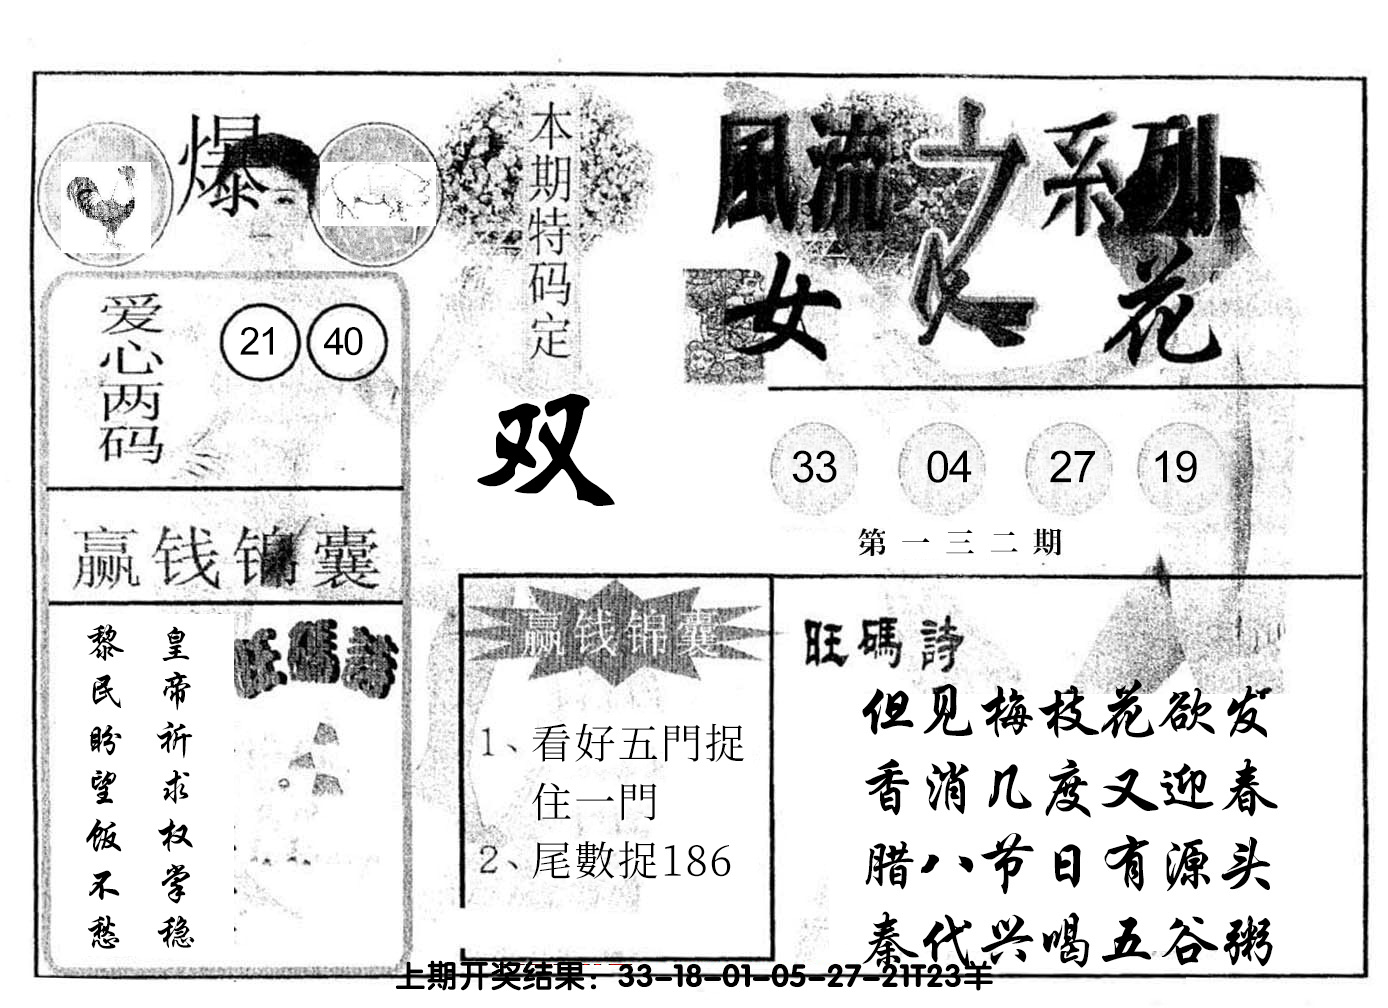 爆
本期特码定
双
風流之系列
女人花
爱心两码
21 40
33 04 27 19
第一三二期
赢钱锦囊
皇帝祈求权掌稳
黎民盼望饭不愁
旺碼詩
赢钱锦囊
1、看好五門捉
住一門
2、尾數捉186
旺碼詩
但见梅枝花欲发
香消几度又迎春
腊八节日有源头
秦代兴喝五谷粥
上期开奖结果：33-18-01-05-27-21T23羊